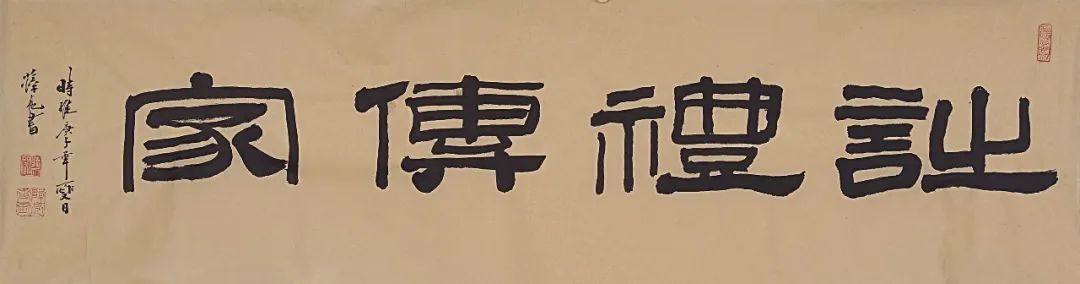 詩禮傳家
時維庚子年夏日
書